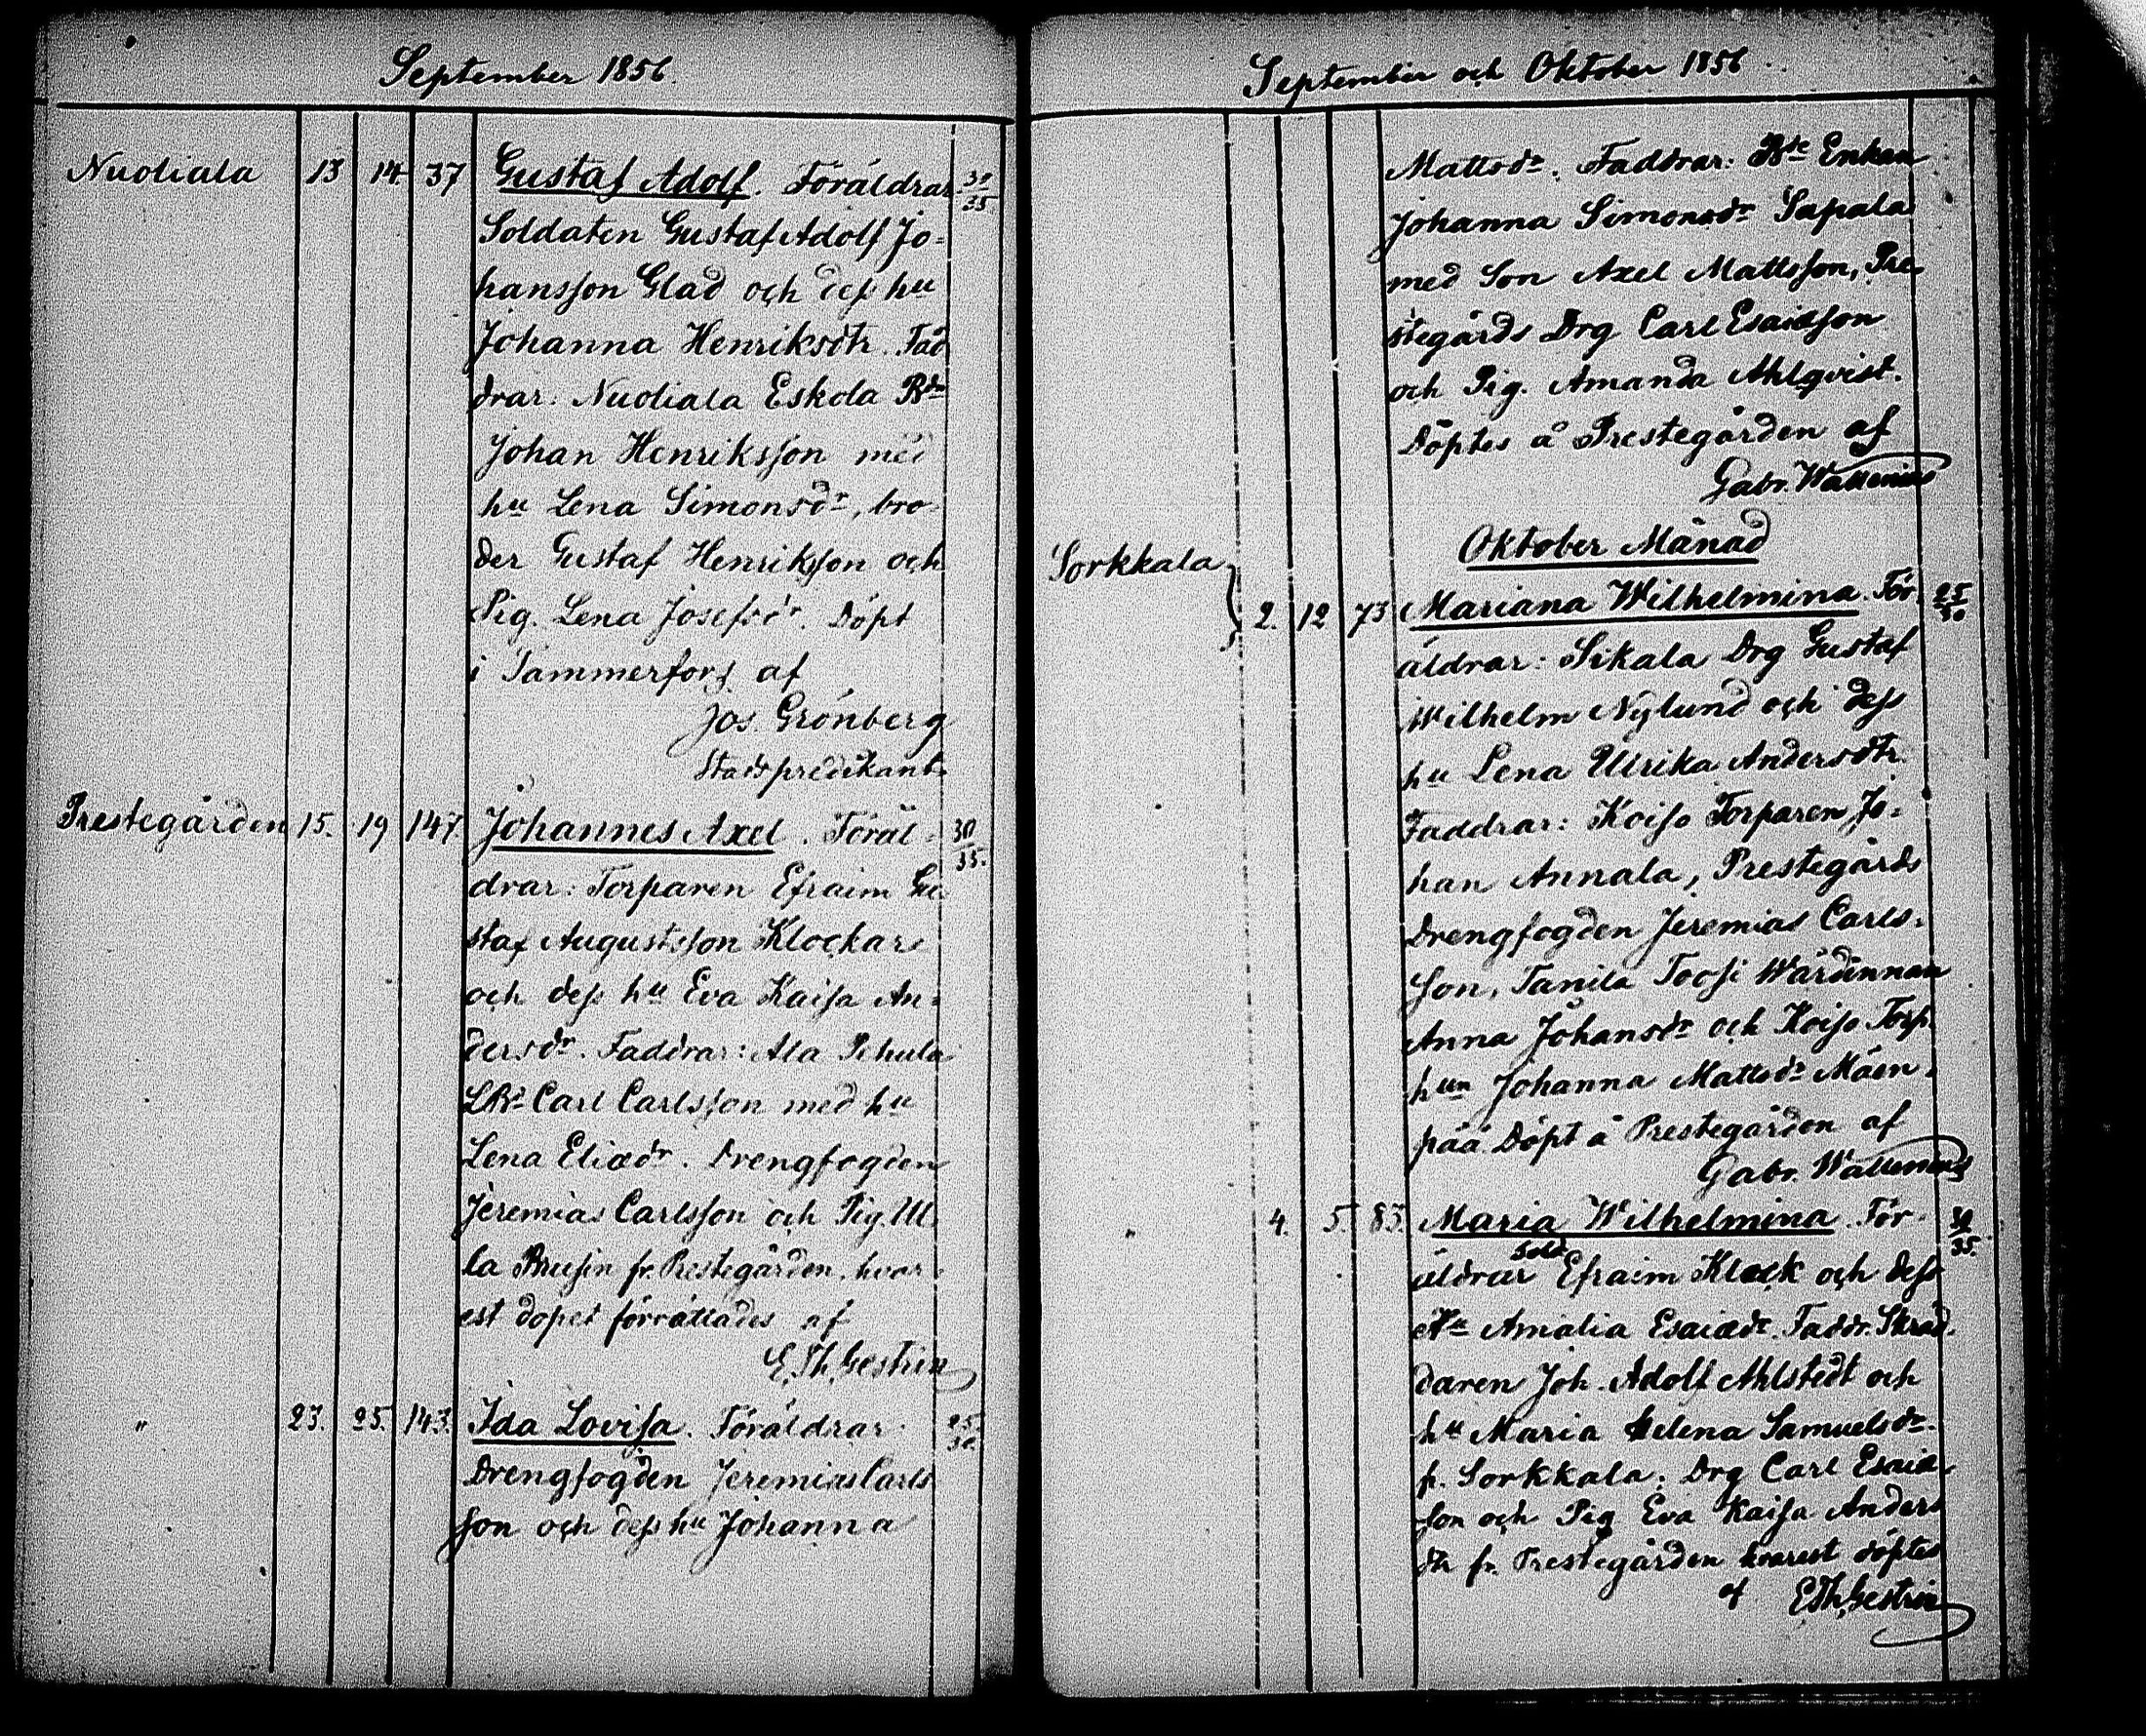 September 1856.
Nuoliala 13 14. 37 Gustaf Adolf. Föräldrar 30/35
Soldaten Gustaf Adolf Jo=
hansson Glad och dess hu
Johanna Henriksdtr. Fad
drar. Nuoliala Eskola Bdn
Johan Henriksson med
hu Lena Simonsdr, bro
der Gustaf Henriksson och
Pig. Lena Josefsdr. Döpt
i Tammerfors af
Jos. Grönberg
Stadspredikant.
Prestegården 15. 19 147. Johannes Axel. Föräl= 30/35.
drar: Torparen Efraim Gu
staf Augustsson Klockars
och dess hu Eva Kaisa An=
dersdr. Faddrar: Ala Pihula
Carl Carlsson med hu
Lena Eliædr. Drengfogden
Jeremias Carlsson och Pig. Ul
la fr. Prestegården, hvar=
est dopet förrättades af
E. Th. Gestrin
" 23. 25. 143. Ida Lovisa. Föräldrar 25/30.
Drengfogden Jeremias Carls
son och dess hu Johanna
September och Oktober 1856.
Mattsdr. Faddrar: Bde Enkan
Johanna Simonsdr Sapala
med Son Axel Mattsson, Pre
stegårds Drg Carl Esaiæson
och Pig. Amanda Ahlqvist.
Döptes å Prestegården af
Gabr. Wallenius
Oktober Månad
Sorkkala
2. 12 73 Mariana Wilhelmina. För 25/30
äldrar: Sikala Drg Gustaf
Wilhelm Nylund och dess
hu Lena Ulrika Andersdtr.
Faddrar: Koiso Torparen Jo=
han Annala, Prestegårds
Drengfogden Jeremias Carls=
son, Tanila Toosi Wärdinnan
Anna Johansdr och Koiso Torp.
hun Johanna Mattsdr Mäen=
pää. Döpt å Prestegården af
Gabr. Wallenius
" 4. 5. 83. Maria Wilhelmina. För= 30/35.
äldrar Sold. Efraim Klock och dess
Hu Amalia Esaiædr. Faddr. Skräd=
daren Joh. Adolf Ahlstedt och
hu Maria Helena Samuelsdr.
fr. Sorkkala; Drg Carl Esaiæ
son och Pig Eva Kaisa Anders
dtr fr. Prestegården hvarest döptes
af E. Th. Gestrin